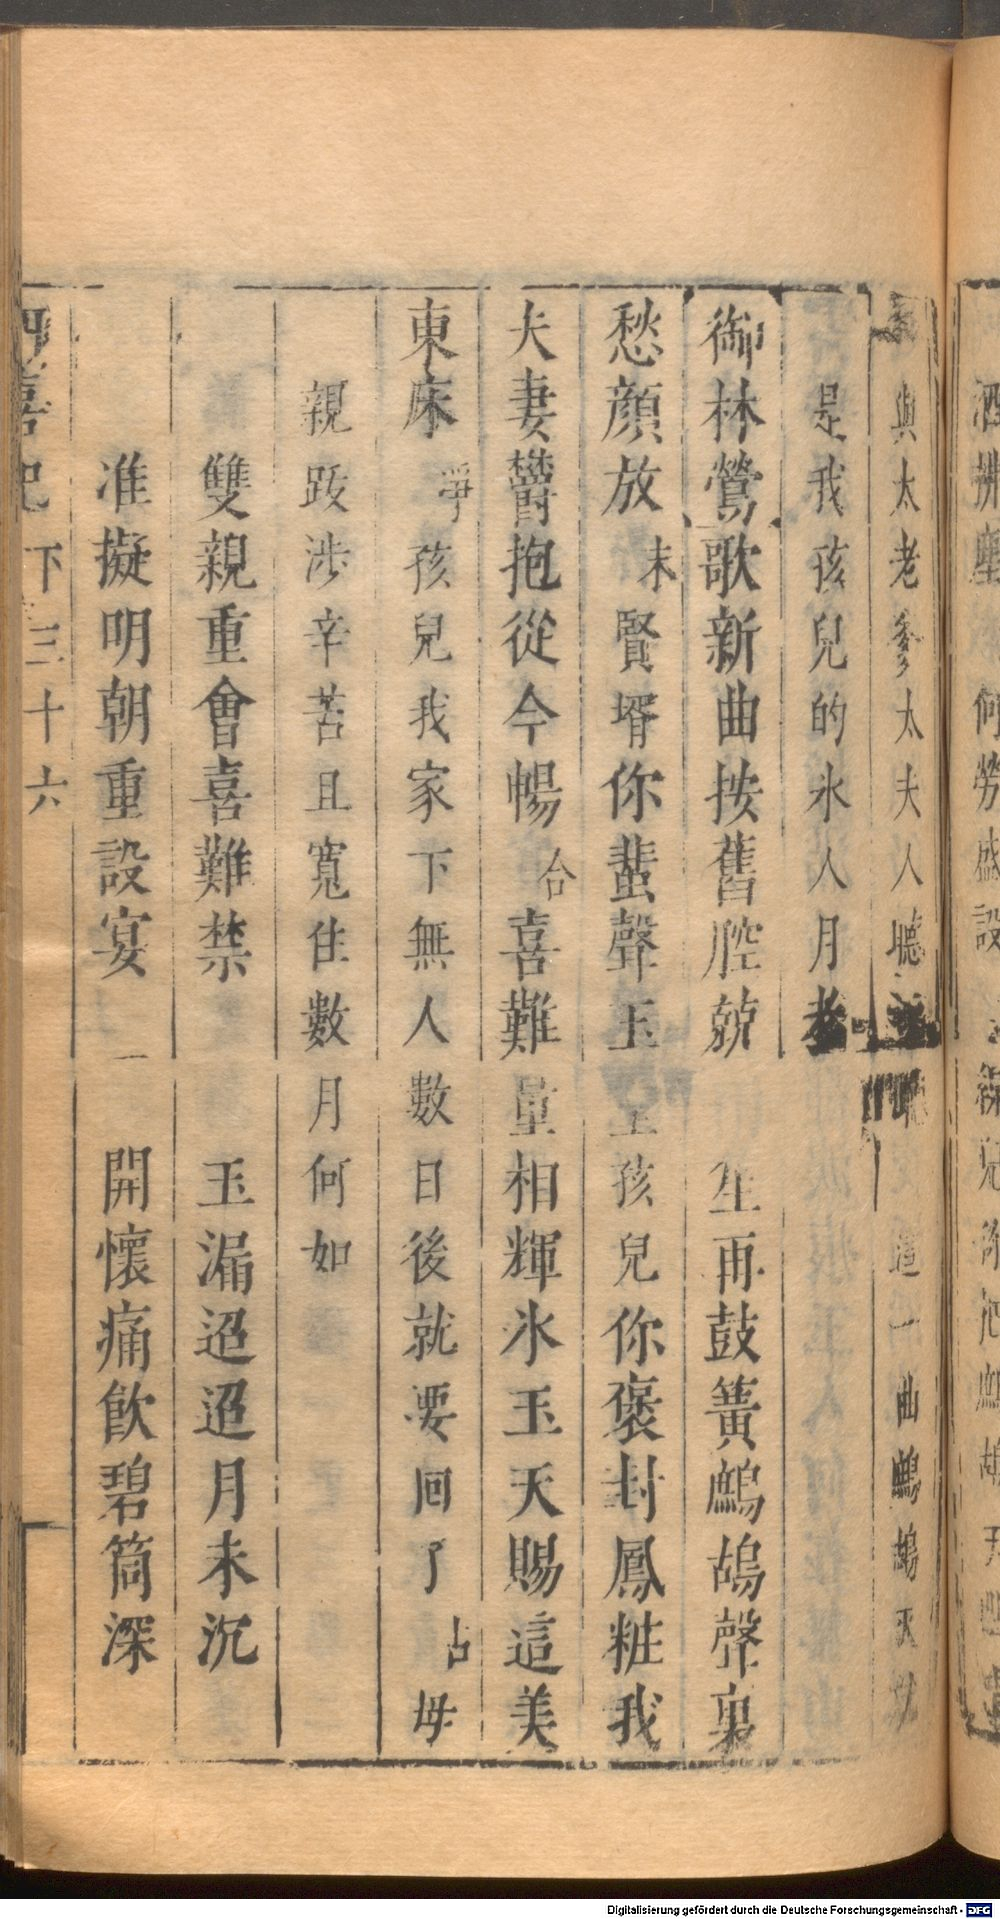 與太老爹太夫人聽 這一曲鷓鴣天
是我孩兒的氷人月老
御林鶯歌新曲按舊腔兢 生再鼓簧鷓鴣聲裏
愁顏放 末賢壻你蜚聲玉 孩兒你褒封鳳粧我
夫妻欝抱從今暢 合喜難量相輝氷玉天賜這美
東床 淨孩兒我家下無人數日後就要回了 占母
親跋涉辛苦且寬住數月何如
雙親重會喜難禁 玉漏迢迢月未沉
准擬明朝重設宴 開懷痛飲碧筒深
四喜記 下三十六
酒拂塵 何勞盛設
Digitalisierung gefördert durch die Deutsche Forschungsgemeinschaft - DFG